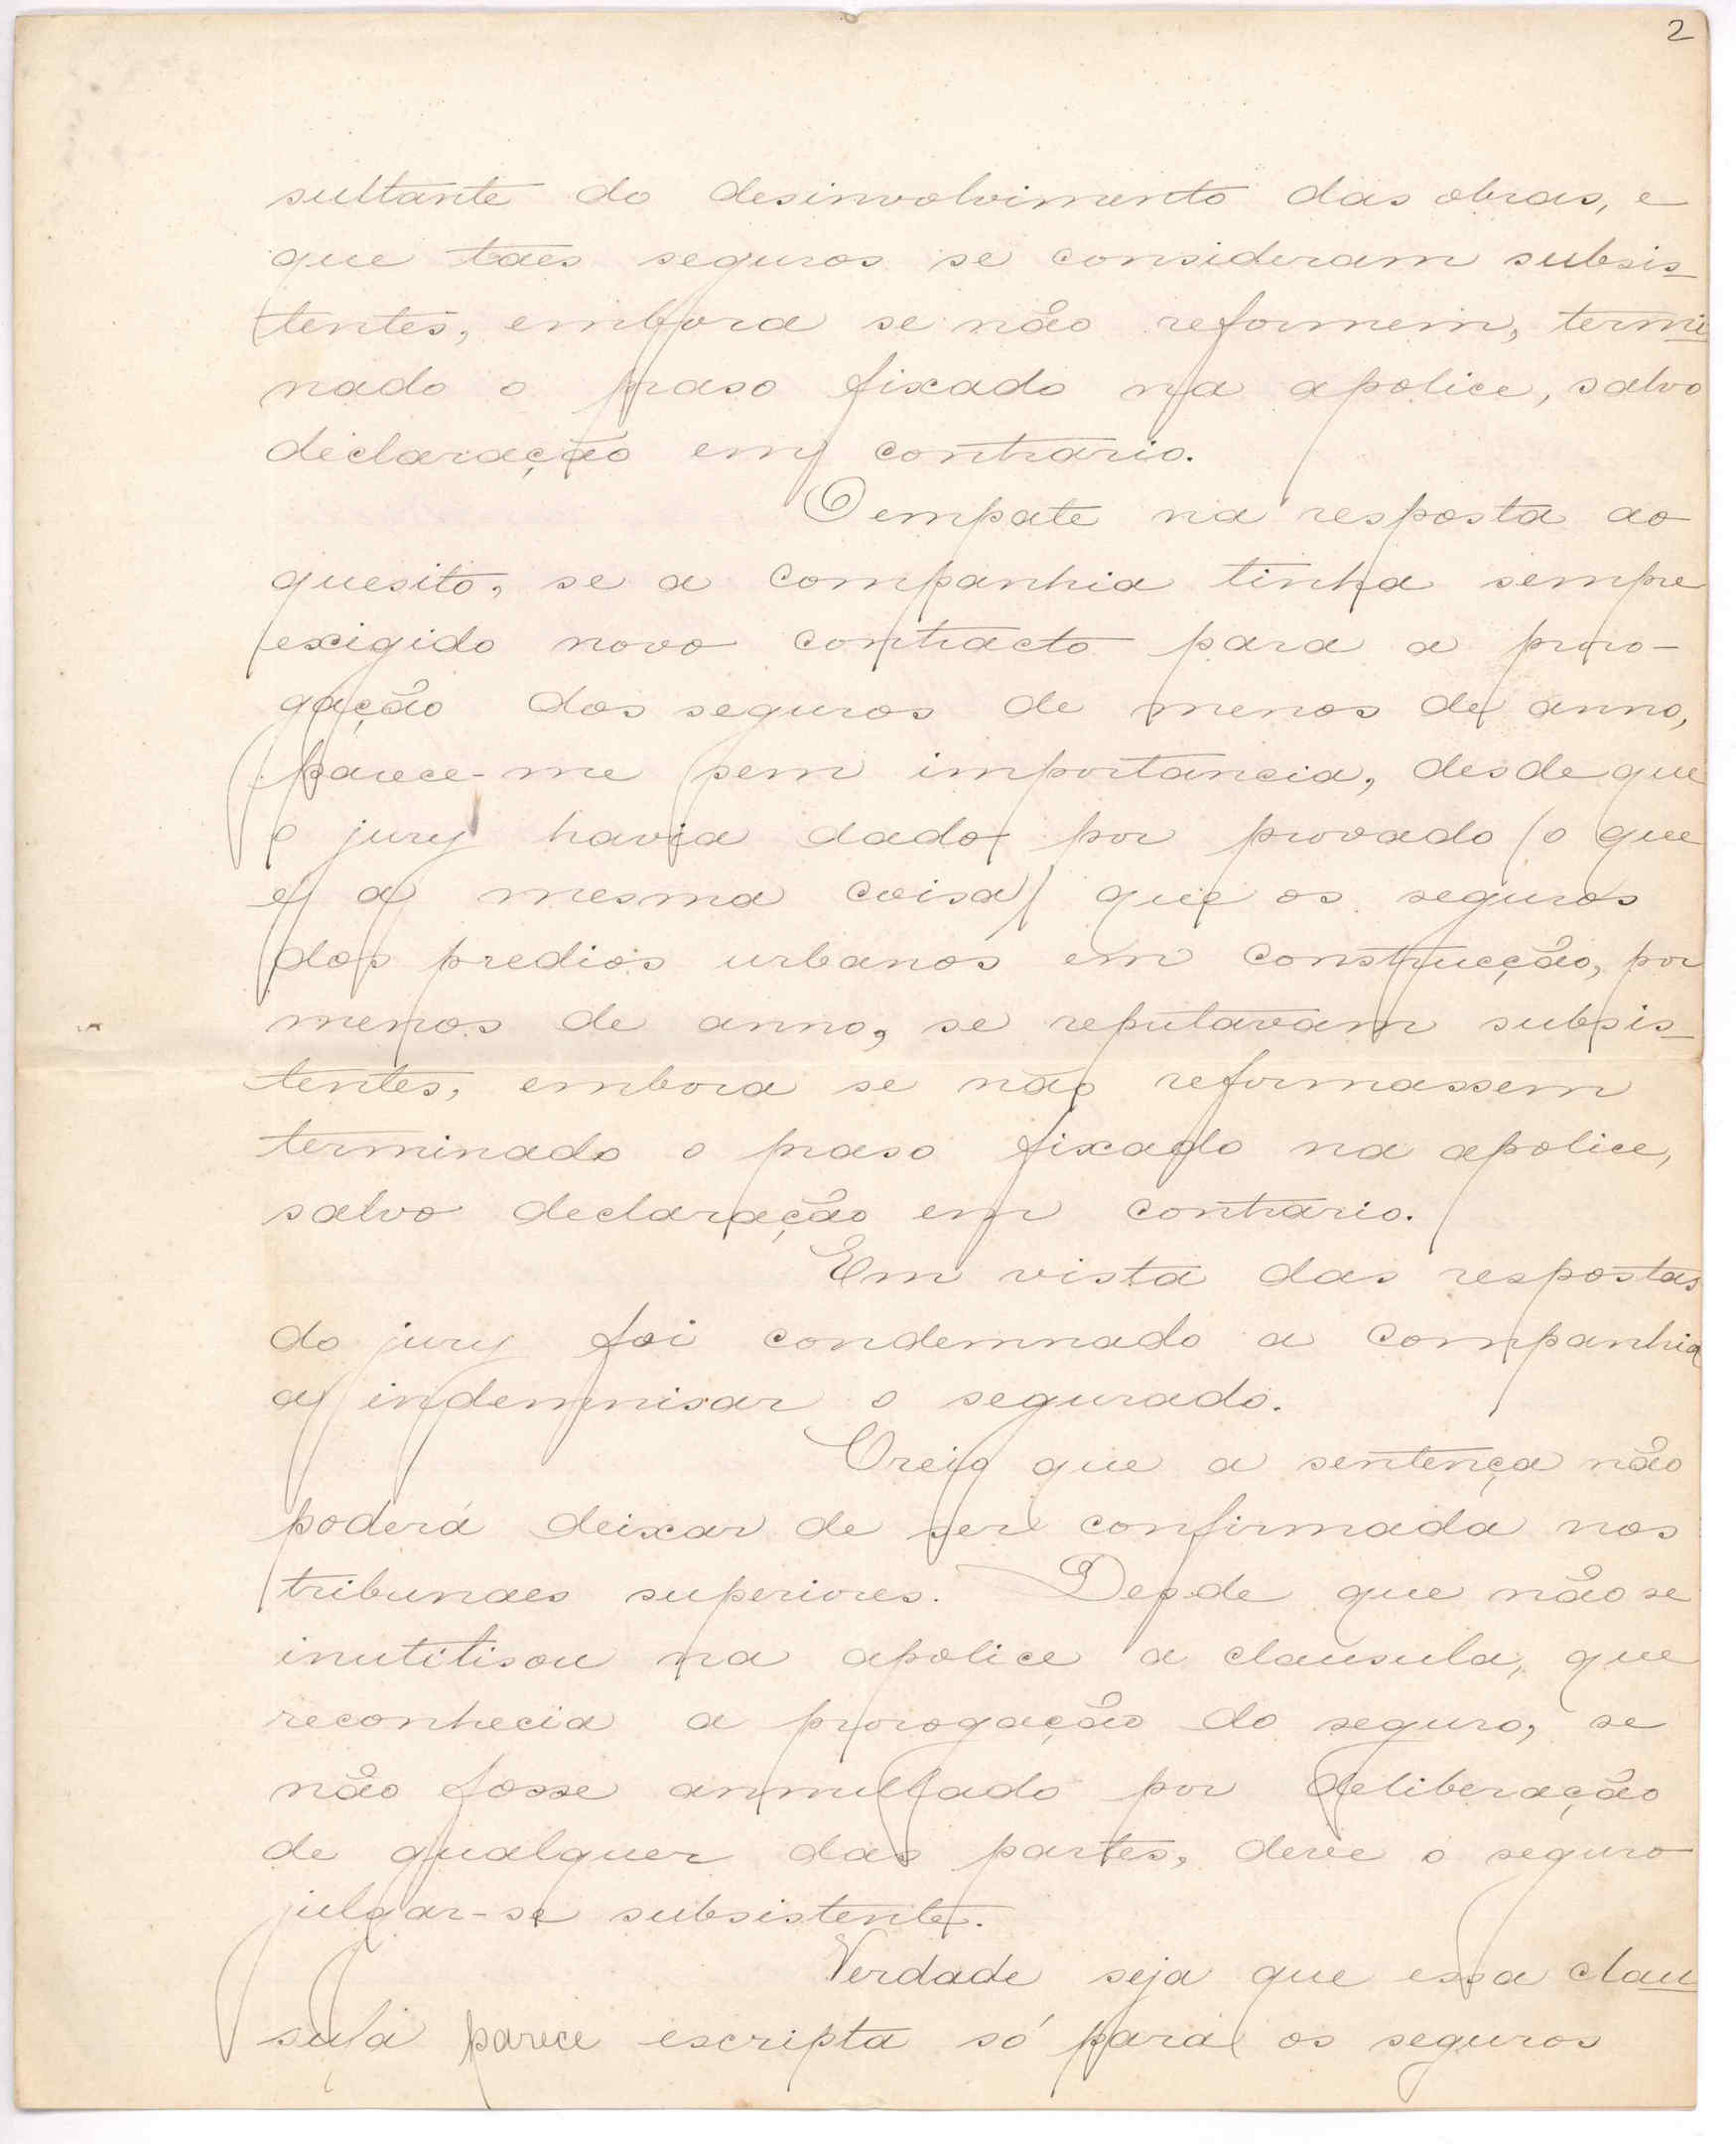 2
sultante do desinvolvimento das obras, e
que taes seguros se consideram subsis
tentes, embora se não reformem, termi
nado o praso fixado na apolice, salvo
declaração em contrario.
O empate na resposta ao
quesito, se a companhia tinha sempre
exigido novo contracto para a proro-
gação dos seguros de menos de anno,
parece-me sem importancia, desde que
o jury havia dado por provado (o que
é a mesma coisa) que os seguros
dos predios urbanos em construcção, por
menos de anno, se reputavam subsis
tentes, embora se não reformassem
terminado o praso fixado na apolice,
salvo declaração em contrario.
Em vista das respostas
do jury foi condemnado a companhia
a indemnisar o segurado.
Creio que a sentença não
poderá deixar de ser confirmada nos
tribunaes superiores. Desde que não se
inutilisou na apolice a clausula, que
reconhecia a prorogação do seguro, se
não fosse annullado por deliberação
de qualquer das partes, deve o seguro
julgar-se subsistente.
Verdade seja que essa clau
sula parece escripta só para os seguros